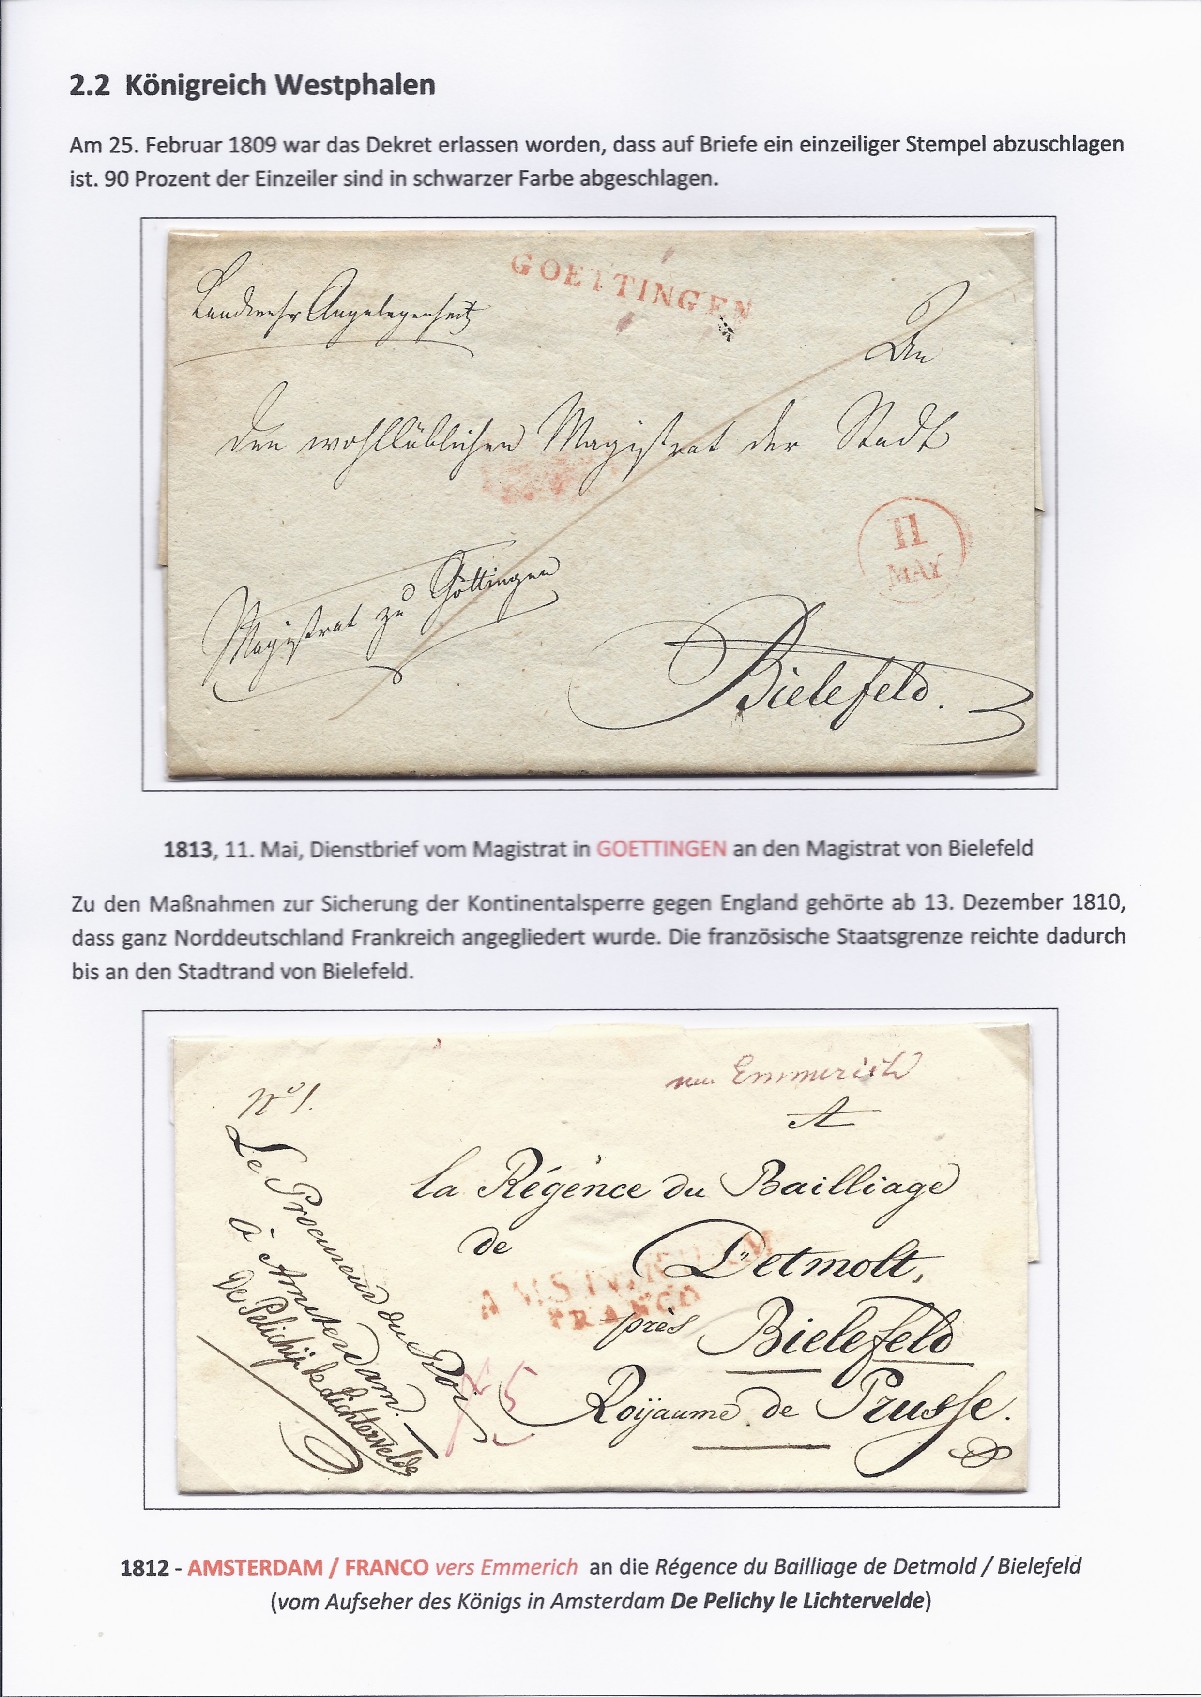 2.2 Königreich Westphalen
Am 25. Februar 1809 war das Dekret erlassen worden, dass auf Briefe ein einzeiliger Stempel abzuschlagen
ist. 90 Prozent der Einzeiler sind in schwarzer Farbe abgeschlagen.
GOETTINGEN
Landwehr Angelegenheit
An
den wohllöblichen Magistrat der Stadt
11
MAY
Magistrat zu Göttingen
Bielefeld.
1813, 11. Mai, Dienstbrief vom Magistrat in GOETTINGEN an den Magistrat von Bielefeld
Zu den Maßnahmen zur Sicherung der Kontinentalsperre gegen England gehörte ab 13. Dezember 1810,
dass ganz Norddeutschland Frankreich angegliedert wurde. Die französische Staatsgrenze reichte dadurch
bis an den Stadtrand von Bielefeld.
Emmerich
No 1.
A
la Régence du Bailliage
de Detmolt,
AMSTERDAM
FRANCO
près Bielefeld
Royaume de Prusse.
Le Procureur du Roi
à Amsterdam.
De Pelichy le Lichtervelde
1812 - AMSTERDAM / FRANCO vers Emmerich an die Régence du Bailliage de Detmold / Bielefeld
(vom Aufseher des Königs in Amsterdam De Pelichy le Lichtervelde)